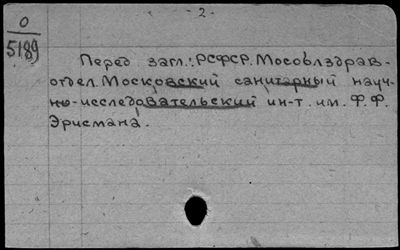 - 2 -
0
5189
Перед загл.: РСФСР. Мособлздрав-
отдел. Московский санитарный науч-
но-исследовательский ин-т. им. Ф.Ф.
Эрисмана.